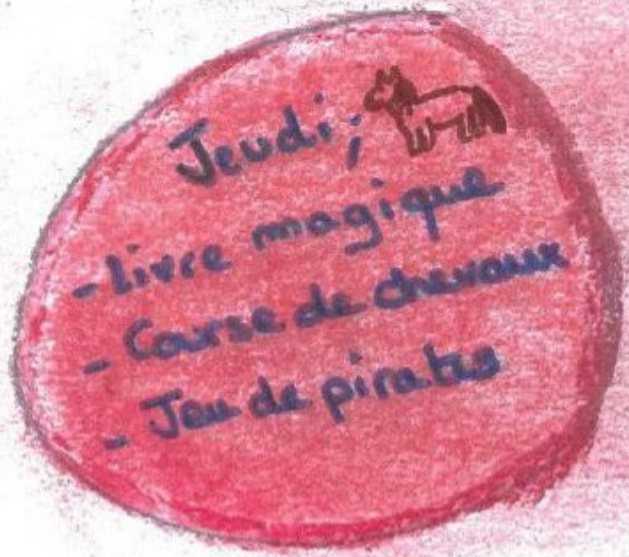 Jeudi;
- Livre magique
- Course de chevaux
- Jeu de pirates